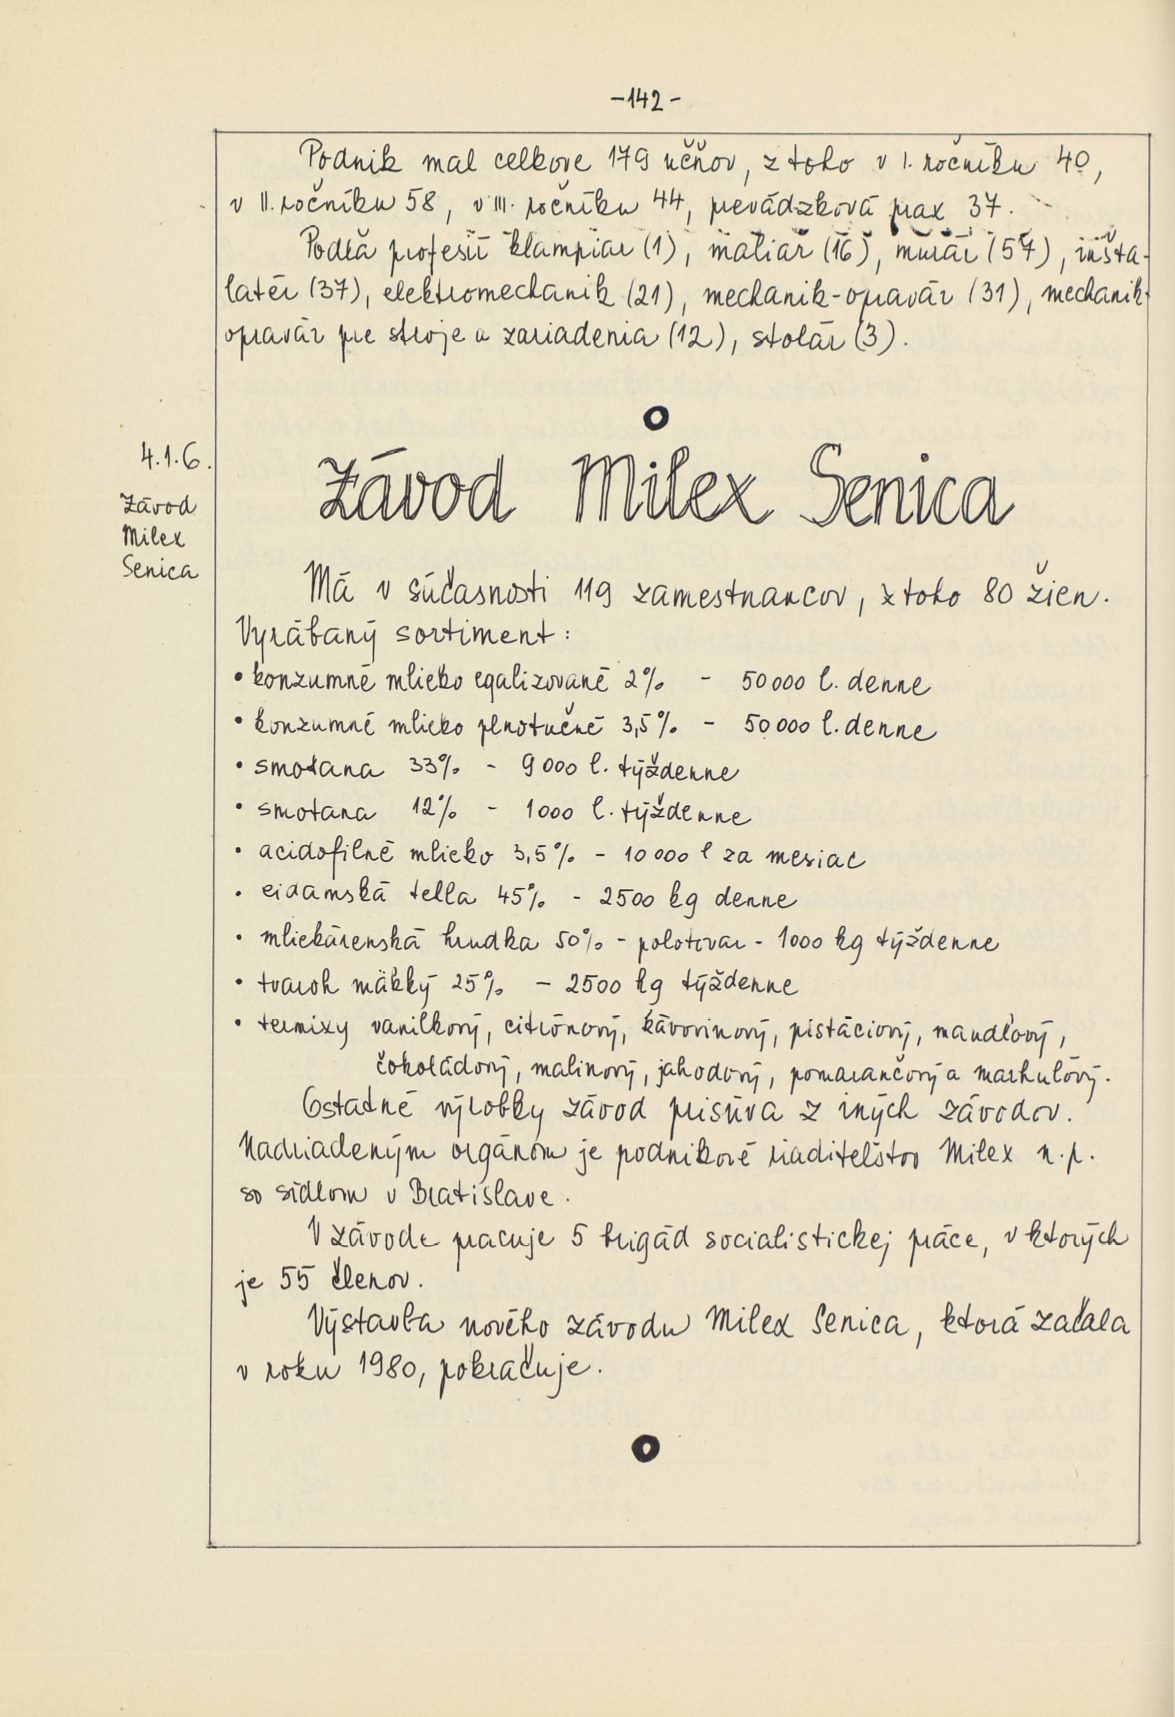 -142-
Podnik mal celkove 179 učňov, z toho v I. ročníku 40,
v II. ročníku 58, v III. ročníku 44, prevádzková prax 37.
Podľa profesií klampiar (1), maliar (16), murár (57), inšta-
latér (37), elektromechanik (21), mechanik-opravár (31), mechanik-
opravár pre stroje a zariadenia (12), stolár (3).
4.1.6.
Závod
Milex
Senica
Závod Milex Senica
Má v súčasnosti 119 zamestnancov, z toho 80 žien.
Vyrábaný sortiment:
• konzumné mlieko egalizované 2% - 50000 l. denne
• konzumné mlieko plnotučné 3,5% - 50000 l. denne
• smotana 33% - 9000 l. týždenne
• smotana 12% - 1000 l. týždenne
• acidofilné mlieko 3,5% - 10000 l za mesiac
• eidamská tella 45% - 2500 kg denne
• mliekárenská hrudka 50% - polotovar - 1000 kg týždenne
• tvaroh mäkký 25% - 2500 kg týždenne
• termixy vanilkový, citrónový, kávovinový, pistáciový, mandľový,
čokoládový, malinový, jahodový, pomarančový a marhuľový.
Ostatné výrobky závod prisúva z iných závodov.
Nadriadeným orgánom je podnikové riaditeľstvo Milex n.p.
so sídlom v Bratislave.
V závode pracuje 5 brigád socialistickej práce, v ktorých
je 55 členov.
Výstavba nového závodu Milex Senica, ktorá začala
v roku 1980, pokračuje.